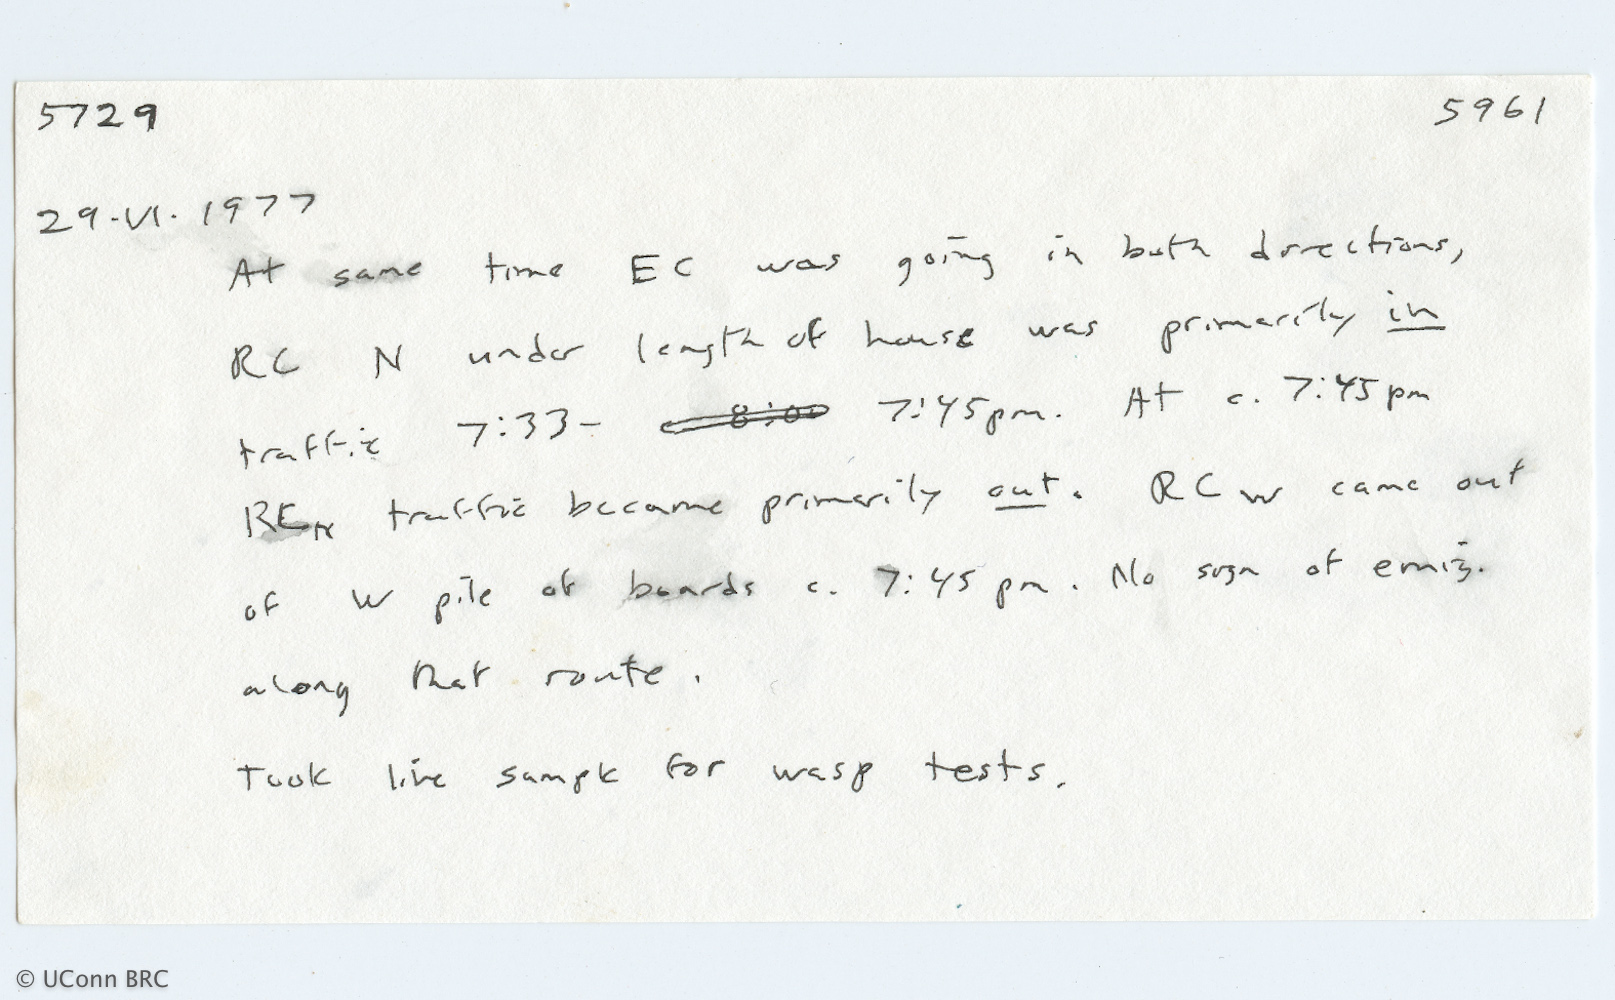 5729 5961
29.VI.1977
At same time EC was going in both directions,
RC N under length of house was primarily in
traffic 7:33- 8:00 7:45pm. At c. 7:45pm
RC N traffic became primarily out. RC W came out
of W pile of boards c. 7:45 pm. No sign of emig.
along that route.
Took live sample for wasp tests.
© UConn BRC